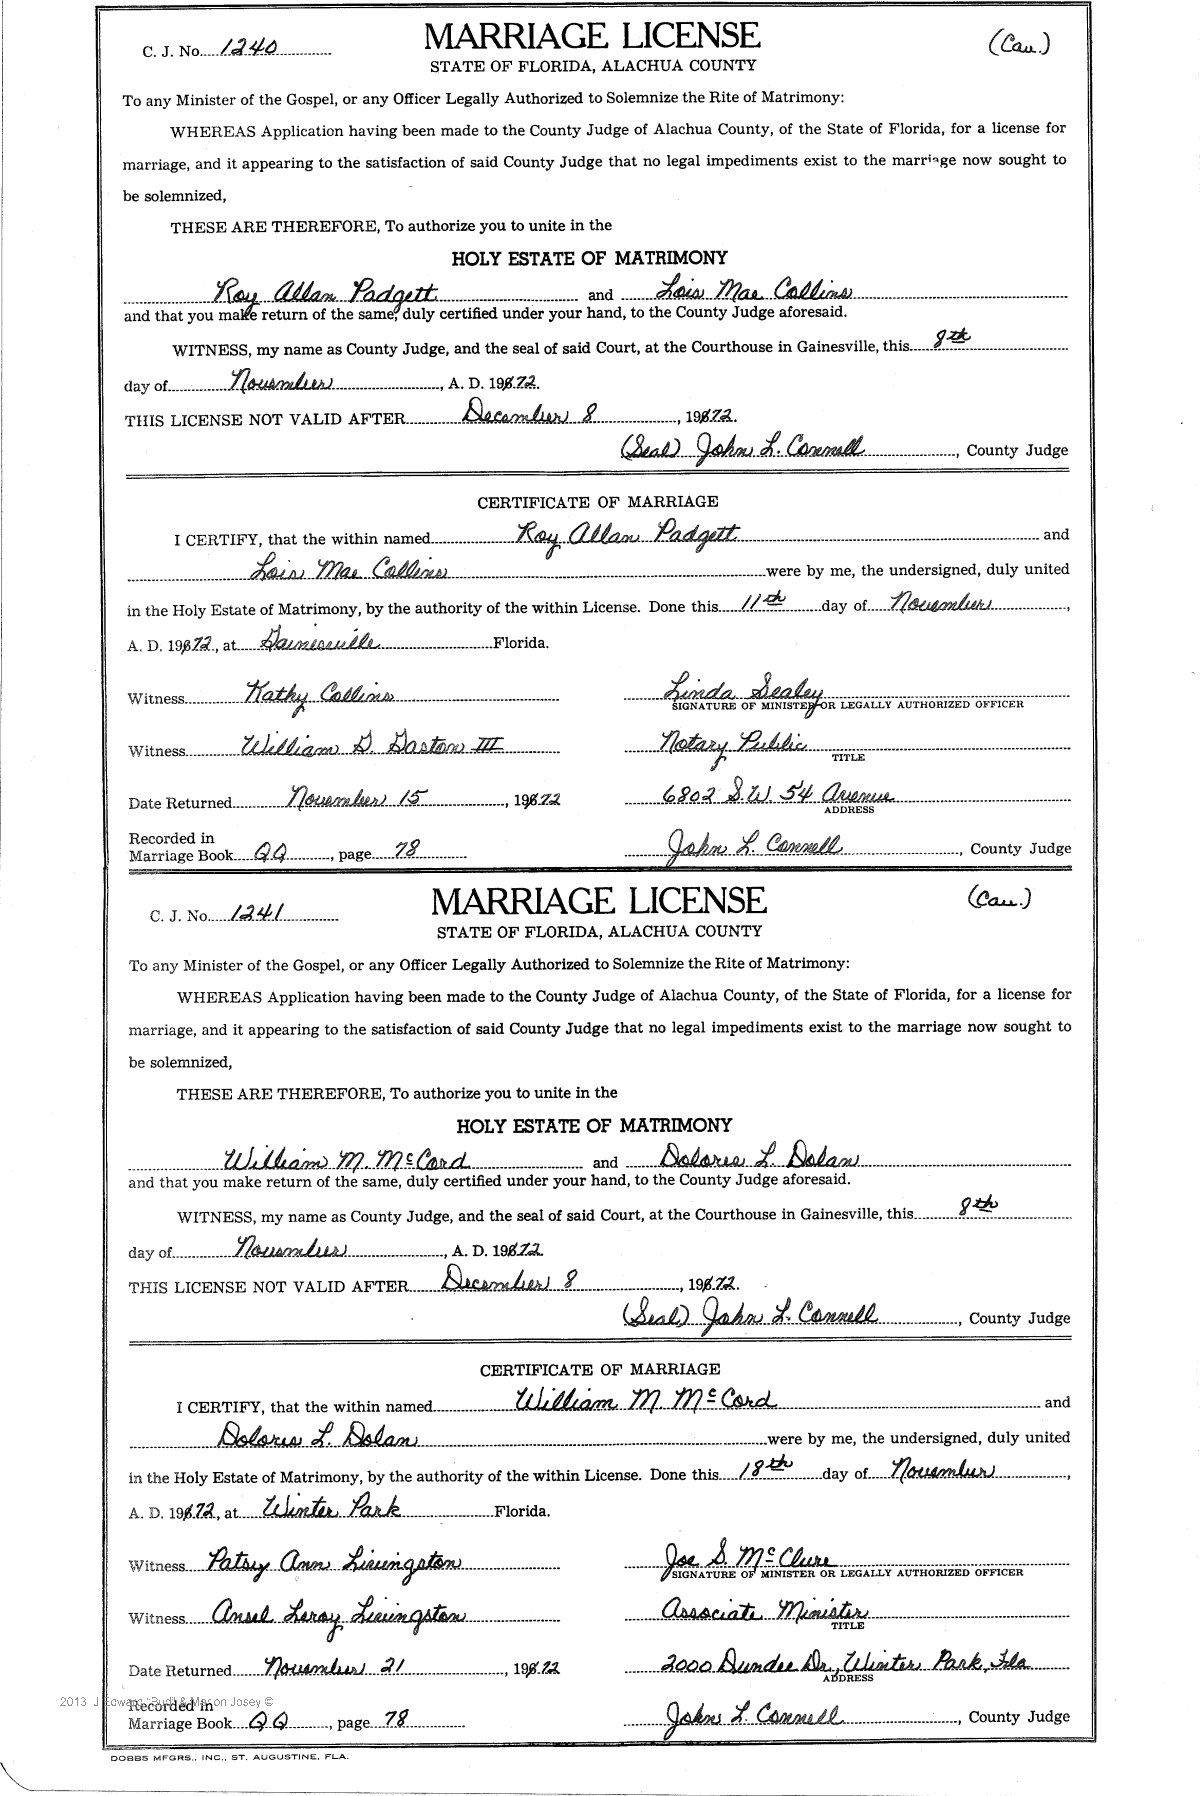 C. J. No. 1240
MARRIAGE LICENSE
(Cau.)
STATE OF FLORIDA, ALACHUA COUNTY
To any Minister of the Gospel, or any Officer Legally Authorized to Solemnize the Rite of Matrimony:
WHEREAS Application having been made to the County Judge of Alachua County, of the State of Florida, for a license for
marriage, and it appearing to the satisfaction of said County Judge that no legal impediments exist to the marriage now sought to
be solemnized,
THESE ARE THEREFORE, To authorize you to unite in the
HOLY ESTATE OF MATRIMONY
Roy Allan Padgett and Lois Mae Collins
and that you make return of the same, duly certified under your hand, to the County Judge aforesaid.
WITNESS, my name as County Judge, and the seal of said Court, at the Courthouse in Gainesville, this 8th
day of November, A. D. 1972.
THIS LICENSE NOT VALID AFTER December 8, 1972.
(Seal) John L. Connell, County Judge
CERTIFICATE OF MARRIAGE
I CERTIFY, that the within named Roy Allan Padgett and
Lois Mae Collins were by me, the undersigned, duly united
in the Holy Estate of Matrimony, by the authority of the within License. Done this 11th day of November,
A. D. 1972, at Gainesville Florida.
Witness Kathy Collins
Linda Sealey
SIGNATURE OF MINISTER OR LEGALLY AUTHORIZED OFFICER
Witness William D. Gaston III
Notary Public
TITLE
Date Returned November 15, 1972
6802 S.W. 54 Avenue
ADDRESS
Recorded in
Marriage Book QQ, page 78
John L. Connell, County Judge
C. J. No. 1241
MARRIAGE LICENSE
(Cau.)
STATE OF FLORIDA, ALACHUA COUNTY
To any Minister of the Gospel, or any Officer Legally Authorized to Solemnize the Rite of Matrimony:
WHEREAS Application having been made to the County Judge of Alachua County, of the State of Florida, for a license for
marriage, and it appearing to the satisfaction of said County Judge that no legal impediments exist to the marriage now sought to
be solemnized,
THESE ARE THEREFORE, To authorize you to unite in the
HOLY ESTATE OF MATRIMONY
William M. McCord and Doloris L. Dolan
and that you make return of the same, duly certified under your hand, to the County Judge aforesaid.
WITNESS, my name as County Judge, and the seal of said Court, at the Courthouse in Gainesville, this 8th
day of November, A. D. 1972
THIS LICENSE NOT VALID AFTER December 8, 1972.
(Seal) John L. Connell, County Judge
CERTIFICATE OF MARRIAGE
I CERTIFY, that the within named William M. McCord and
Doloris L. Dolan were by me, the undersigned, duly united
in the Holy Estate of Matrimony, by the authority of the within License. Done this 18th day of November,
A. D. 1972, at Winter Park Florida.
Witness Patsy Ann Livingston
Joe S. McClure
SIGNATURE OF MINISTER OR LEGALLY AUTHORIZED OFFICER
Witness Ansel Leroy Livingston
Associate Minister
TITLE
Date Returned November 21, 1972
2000 Dundee Dr., Winter Park, Fla
ADDRESS
2013 J Edward "Bud" & Marion Josey ©
Recorded in
Marriage Book QQ, page 78
John L. Connell, County Judge
DOBBS MFGRS., INC., ST. AUGUSTINE, FLA.